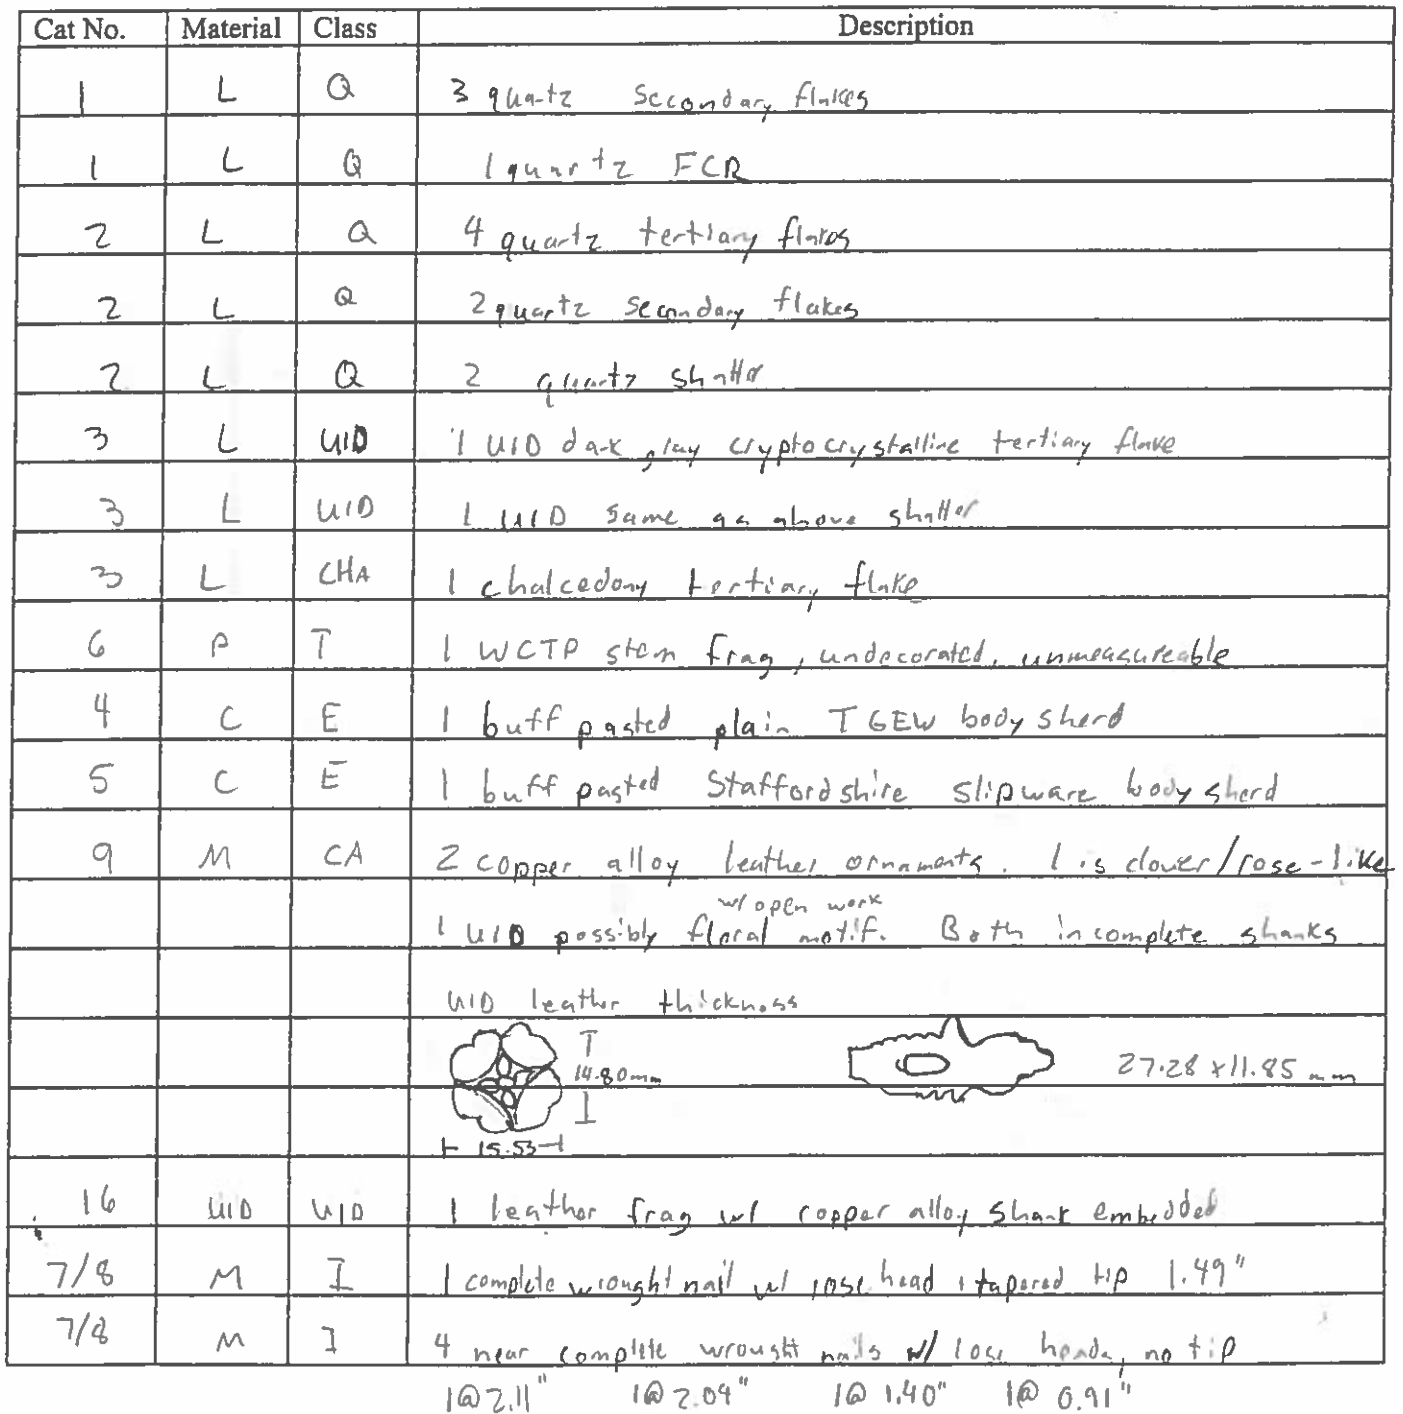 Cat No. Material Class Description
1 L Q 3 quartz secondary flakes
1 L Q 1 quartz FCR
2 L Q 4 quartz tertiary flakes
2 L Q 2 quartz secondary flakes
2 L Q 2 quartz shatter
3 L UID 1 UID dark gray cryptocrystalline tertiary flake
3 L UID 1 UID same as above shatter
3 L CHA 1 chalcedony tertiary flake
6 P T 1 WCTP stem frag, undecorated, unmeasureable
4 C E 1 buff pasted plain TGEW body sherd
5 C E 1 buff pasted Staffordshire slipware body sherd
9 M CA 2 copper alloy leather ornaments. 1 is clover/rose-like
w/ open work
1 UID possibly floral motif. Both incomplete shanks
UID leather thickness
14.80mm
27.28 x 11.85 mm
15.53
16 UID UID 1 leather frag w/ copper alloy shank embedded
7/8 M I 1 complete wrought nail w/ rose head + tapered tip 1.49"
7/8 M I 4 near complete wrought nails w/ rose heads, no tip
1@2.11" 1@2.04" 1@ 1.40" 1@ 0.91"